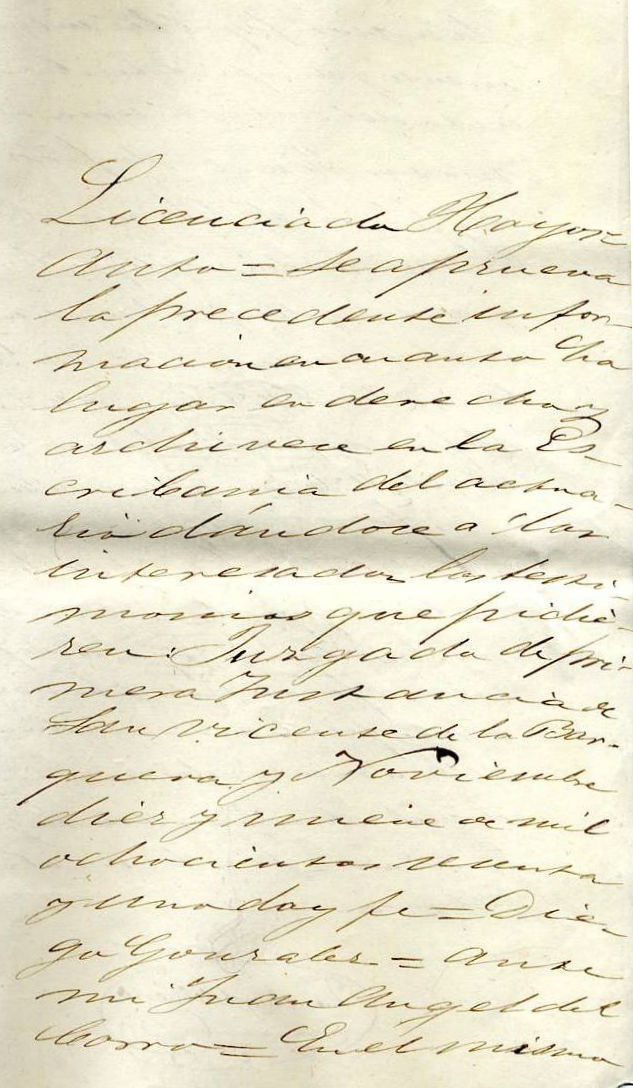 Licenciado Hoyos=
Auto = Se aprueva
la precedente infor-
macion en cuanto ha
lugar en derecho y
archivese en la Es-
cribania del actua-
rio dándose a los
interesados los testi-
monios que pidie-
ren. Juzgado de pri-
mera Instancia de
San Vicente de la Bar-
quera y Noviembre
diez y nueve de mil
ochocientos sesenta
y uno doy fe = Die-
go Gonzalez = Ante
mi Juan Angel del
Corro = En el mismo